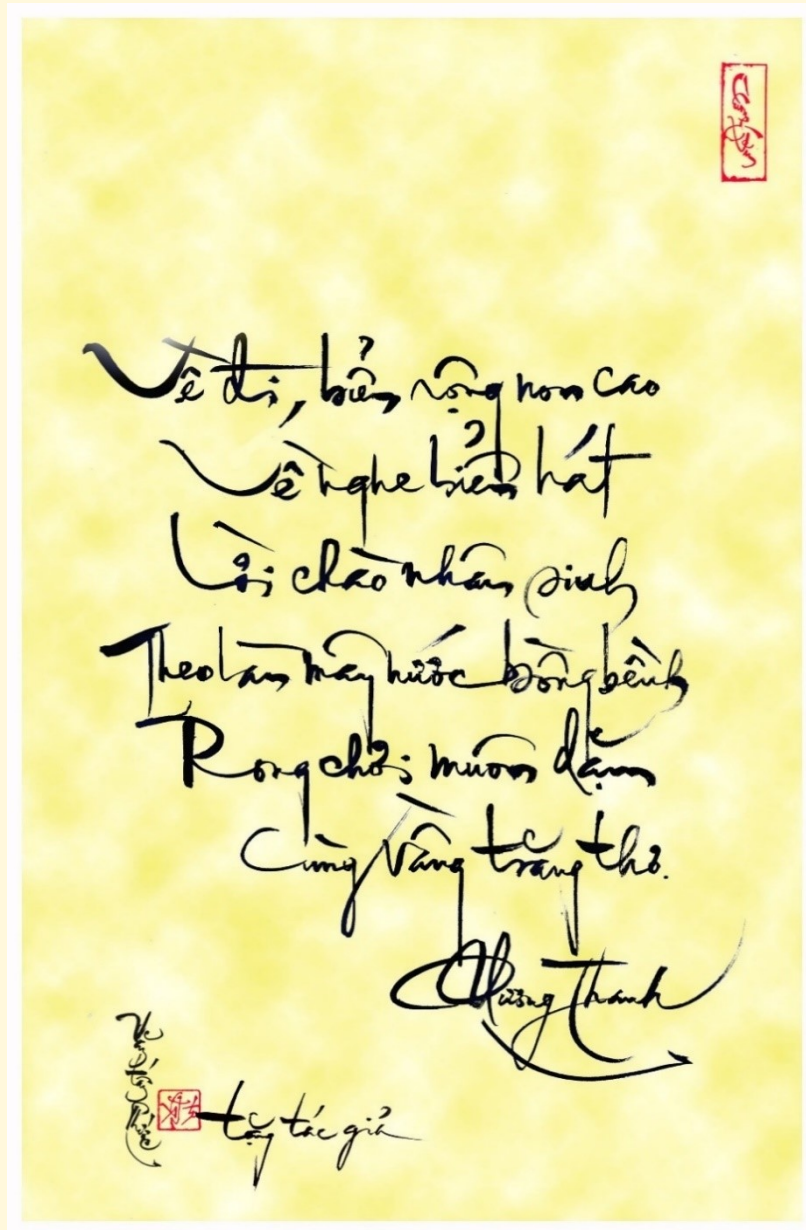 Về đi, biển rộng non cao
Về nghe biển hát
Lời chào nhân sinh
Theo làn mây nước bồng bềnh
Rong chơi muôn dặm
Cùng vầng trăng thơ.
Thanh
tặng tác giả